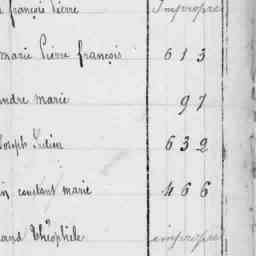 françois Pierre Impropre
marie Pierre françois 613
andre marie 97
Joseph 632
constant marie 466
and Théophile impropre